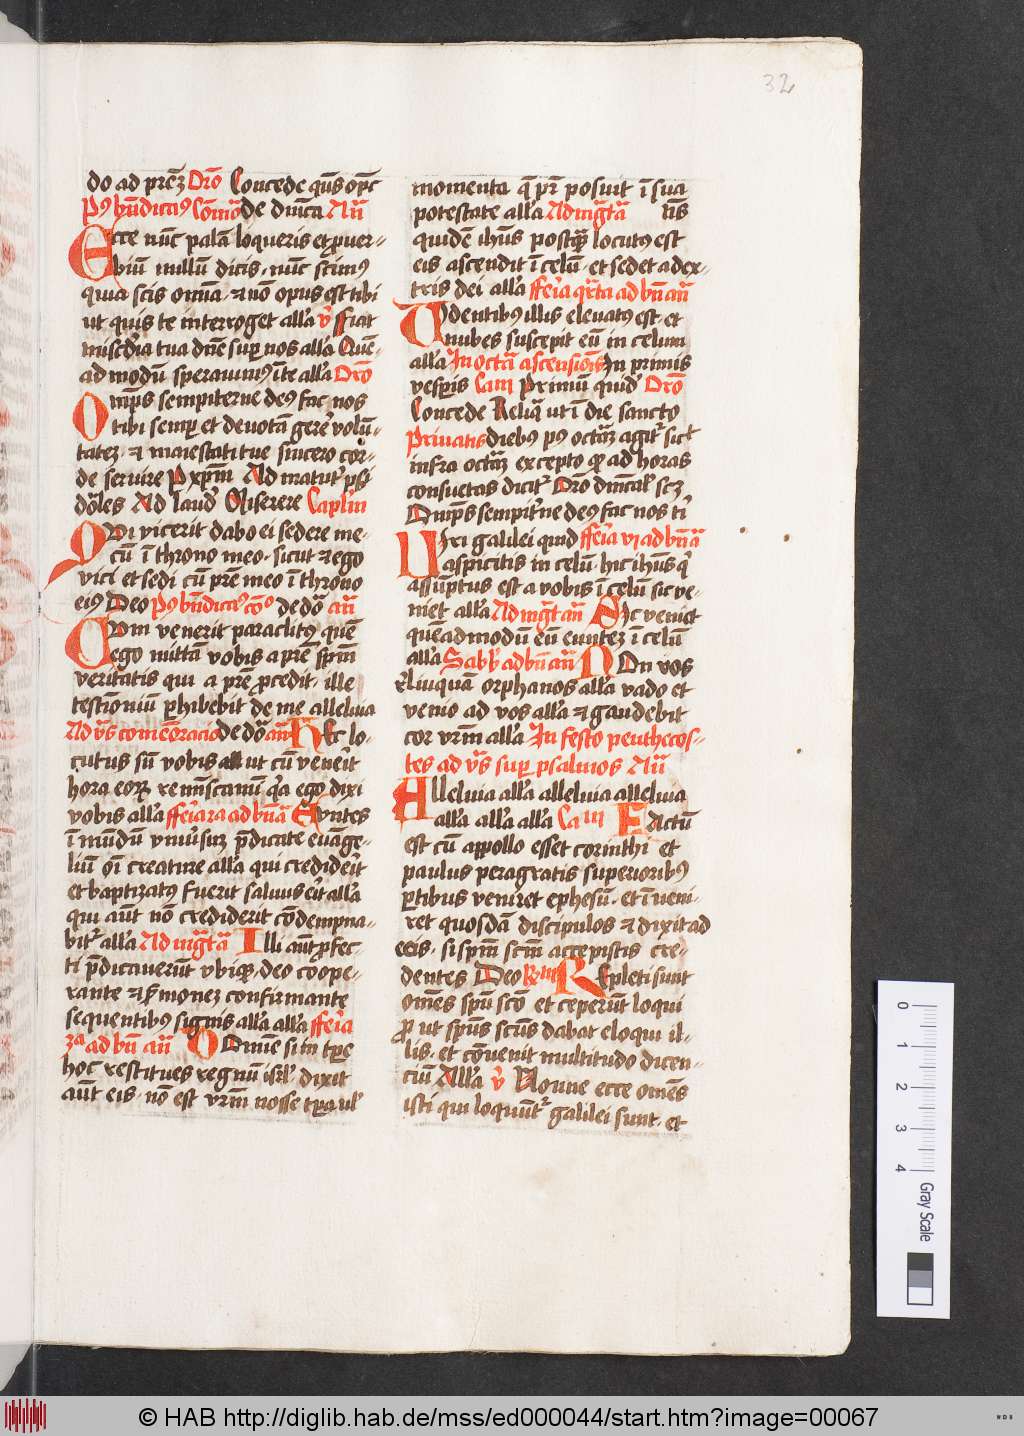 32
do ad prēz Orō Concede qūs opc
Pꝰ bn̄dictꝰ Com̄ōa de dn̄ica An̄
Ecce nūc palā loqueris et prouer-
biū nullū dicis nūc scimꝰ
quia scis om̄ia et nō opus est tibi
ut quis te interroget alla v̄ Fiat
mīa tua dn̄e suꝑ nos alla Quē-
admodū sperauimꝰ ī te alla Orō
Omp̄s sempiterne deꝰ fac nos
tibi semꝑ et deuotā gere volū-
tatez et maiestati tue sincero cor-
de seruire P xp̄m Ad matut psi
Ad laud Miserere Caplm
Qui vicerit dabo ei sedere me-
cū ī throno meo sicut et ego
vici et sedi cū pr̄e meo ī throno
eiꝰ Deo Pꝰ bn̄dictꝰ de dō an̄
Cum venerit paraclitꝰ quē
ego mittā vobis a pr̄e spm̄
veritatis qui a pr̄e ꝓcedit ille
testīoniū ꝑhibebit de me alleluia
Ad vs̄ comēoracio de dō an̄ Hec lo-
cutus sū vobis ut cū venerit
hora eorꝝ reminscamī qa ego dixi
vobis alla fferia ad bn̄ a Euntes
ī mūdū vniuersuz p̄dicate euāge-
liū oī creature alla qui crediderit
et baptizatꝰ fuerit saluus erit alla
qui aūt nō crediderit cōdempna-
bitr alla Ad mgt̄a Illi aūt ꝓfec-
ti p̄dicauerūt vbiqꝫ deo coope-
rante et s̄monez confirmante
sequentibꝰ signis alla alla fferia
3a ad bn̄ an̄ Domine si in tꝑe
hoc restitues regnū isrl dixit
aūt eis nō est vr̄m nosse tꝑa ul
momenta q̄ pr̄ posuit ī sua
potestate alla Ad mgt̄a
quidē ihūs postqꝫ locutꝰ est
eis ascendit ī celū et sedet a dex-
tris dei alla fferia qrta ad bn̄ an̄
Videntibꝰ illis eleuatꝰ est et
nubes suscepit eū in celum
alla In octā ascensiōis In primis
vesꝑis Cam Primū quid Orō
Concede Reliq̄ ut ī die sancto
Priuatis diebꝰ pꝰ octāz agitr sict
infra octāz excepto qꝫ ad horas
consuetas dicitr Orō dn̄cal scz
Omp̄s sempitne deꝰ fac nos ti
Viri galilei quid fferia vi ad bn̄ a
aspicitis in celū hic ihūs q
assūptus est a vobis ī celū sic ve-
niet alla Ad mgt̄ an̄ Sic veniet
quēadmodū eū euntez ī celū
alla Sabbo ad bn̄ an̄ Non vos
relinquam orphanos alla vado et
venio ad vos alla et gaudebit
cor vr̄m alla In festo penthecos-
tes ad vs̄ suꝑ psalmos An̄
Alleluia alla alleluia alleluia
alla alla alla Cam Factū
est cū appollo esset corinthi et
paulus peragratis superioribꝰ
ꝑtibus veniret ephesū et īueni-
ret quosdā discipulos et dixit ad
eeis si spm̄ scm̄ accepistis cre-
dentes Deo Rm Repleti sunt
omēs spū scō et ceperūt loqui
ꝓ ut spūs scūs dabat eloqui il-
lis et cōuenit multitudo dicen-
ciū Alla v̄ Nonne ecce omēs
isti qui loquūtr galilei sunt et
0 1 2 3 4
Gray Scale
© HAB http://diglib.hab.de/mss/ed000044/start.htm?image=00067